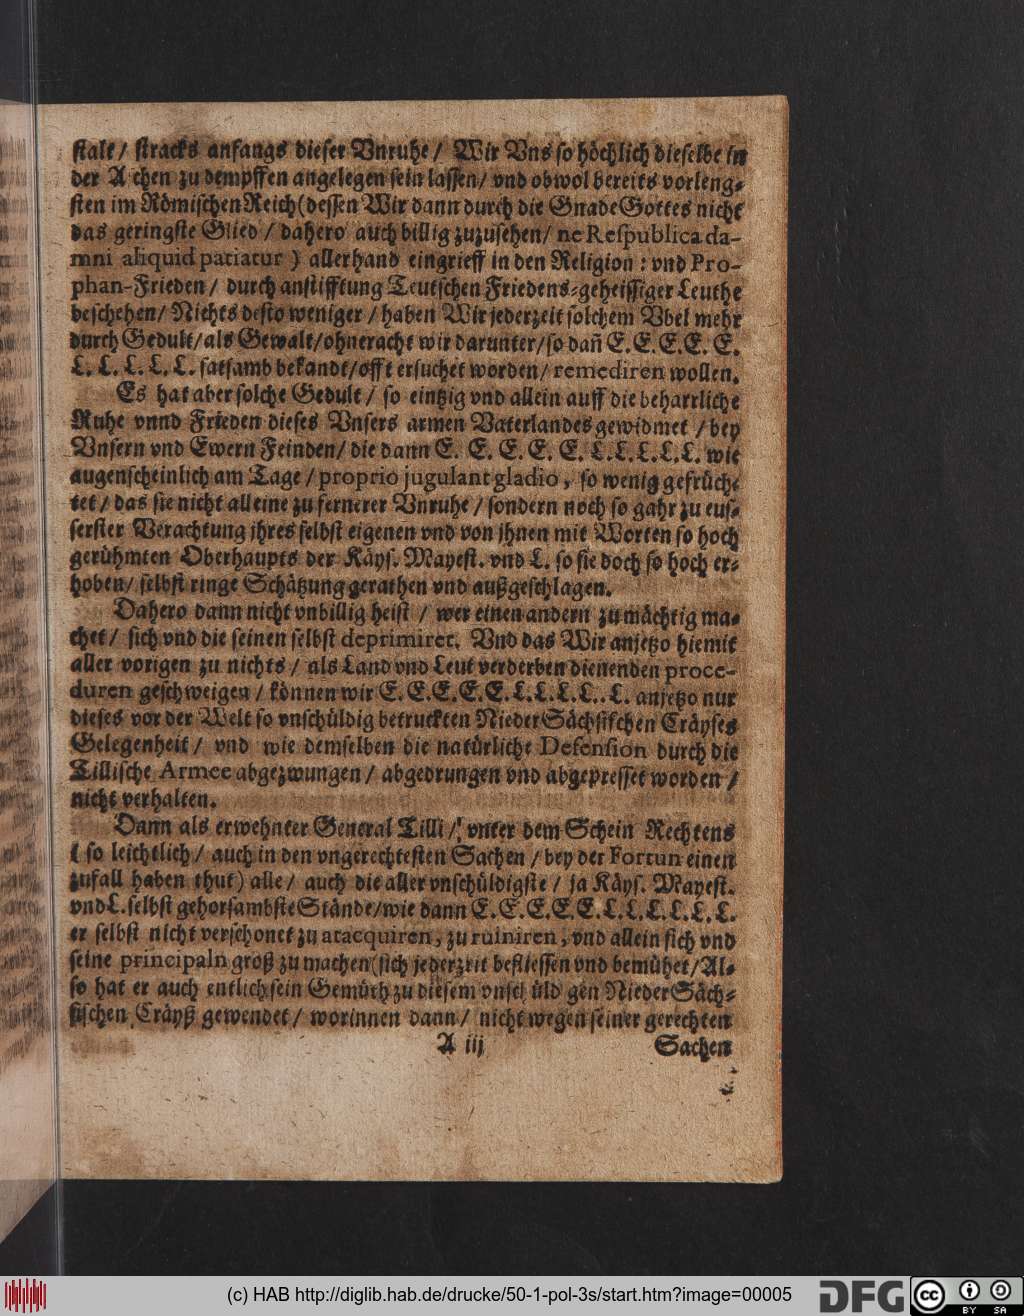 stalt / stracks anfangs dieser Vnruhe / Wir Vns so höchlich dieselbe in
der Aschen zu dempffen angelegen sein lassen / vnd obwol bereits vorleng-
sten im Römischen Reich (dessen Wir dann durch die Gnade Gottes nicht
das geringste Glied / dahero auch billig zuzusehen / ne Respublica da-
mni aliquid patiatur ) allerhand eingrieff in den Religion : vnd Pro-
phan-Frieden / durch anstifftung Teutschen Friedens-geheissiger Leuthe
beschehen / Nichts desto weniger / haben Wir jederzeit solchem Vbel mehr
durch Gedult / als Gewalt / ohneracht wir darunter / so dañ E. E. E. E. E.
L. L. L. L. L. satsamb bekandt / offt ersuchet worden / remediren wollen.
Es hat aber solche Gedult / so eintzig vnd allein auff die beharrliche
Ruhe vnnd Frieden dieses Vnsers armen Vaterlandes gewidmet / bey
Vnsern vnd Ewern Feinden / die dann E. E. E. E. E. L. L. L. L. L. wie
augenscheinlich am Tage / proprio jugulant gladio, so wenig gefrüch-
tet / das sie nicht alleine zu fernerer Vnruhe / sondern noch so gahr zu eus-
serster Verachtung jhres selbst eigenen vnd von jhnen mit Worten so hoch
gerühmten Oberhaupts der Käys. Mayest. vnd L. so sie doch so hoch er-
hoben / selbst ringe Schätzung gerathen vnd außgeschlagen.
Dahero dann nicht vnbillig heist / wer einen andern zu mächtig ma-
chet / sich vnd die seinen selbst deprimiret. Vnd das Wir anjetzo hiemit
aller vorigen zu nichts / als Land vnd Leut verderben dienenden proce-
duren geschweigen / können wir E. E. E. E. E. L. L. L. L. L. anjetzo nur
dieses vor der Welt so vnschüldig betruckten Nieder Sächsischen Cräyses
Gelegenheit / vnd wie demselben die natürliche Defension durch die
Tillische Armee abgezwungen / abgedrungen vnd abgepresset worden /
nicht verhalten.
Dann als erwehnter General Tilli / vnter dem Schein Rechtens
( so leichtlich / auch in den vngerechtesten Sachen / bey der Fortun einen
zufall haben thut ) alle / auch die aller vnschüldigste / ja Käys. Mayest.
vnd L. selbst gehorsambste Stände / wie dann E. E. E. E. E. L. L. L. L. L. L.
er selbst nicht verschonet zu atacquiren, zu ruiniren, vnd allein sich vnd
seine principaln groß zu machen (sich jederzeit befliessen vnd bemühet / Al-
so hat er auch entlich sein Gemüth zu diesem vnschüldigen Nieder Säch-
sischen Cräyß gewendet / worinnen dann / nicht wegen seiner gerechten
A iij Sachen
(c) HAB http://diglib.hab.de/drucke/50-1-pol-3s/start.htm?image=00005
DFG cc BY SA